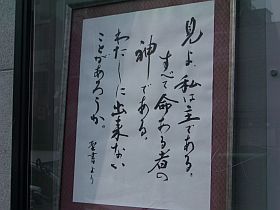 見よ、私は主である。
すべて命ある者の
神である。
わたしに出来ない
ことがあろうか。
聖書より